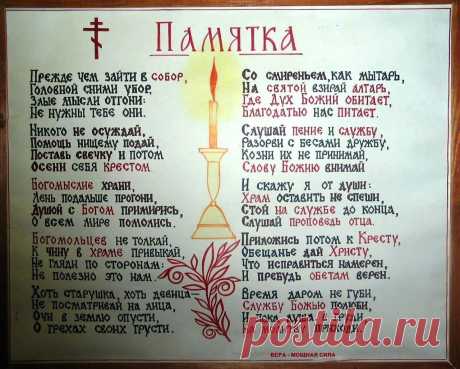 Памятка
Прежде чем зайти в собор,
Головной сними убор,
Злые мысли отгони:
Не нужны тебе они.
Никого не осуждай,
Помощь нищему подай,
Поставь свечку и потом
Осени себя крестом
Богомыслие храни,
Лень подальше прогони,
Душой с Богом примирись,
О всем мире помолись.
Богомольцев не толкай,
К чину в храме привыкай,
Не гляди по сторонам:
Не полезно это нам
Хоть старушка, хоть девица-
Не посматривай на лица,
Очи в землю опусти,
О грехах своих грусти.
Со смиреньем, как мытарь,
На святой взирай алтарь,
Где Дух Божий обитает,
Благодатью нас питает.
Слушай пение и службу,
Разорви с бесами дружбу,
Козни их не принимай,
Слову Божию внимай
И скажу я от души:
Храм оставить не спеши,
Стой на службе до конца,
Слушай проповедь отца.
Приложись потом к Кресту,
Обещанье дай Христу,
Что исправиться намерен,
И пребудь обетам верен.
Время даром не губи,
Службу Божью полюби,
И пока душа в груди
На молитву приходи.
ВЕРА - МОЩНАЯ СИЛА
postila.ru